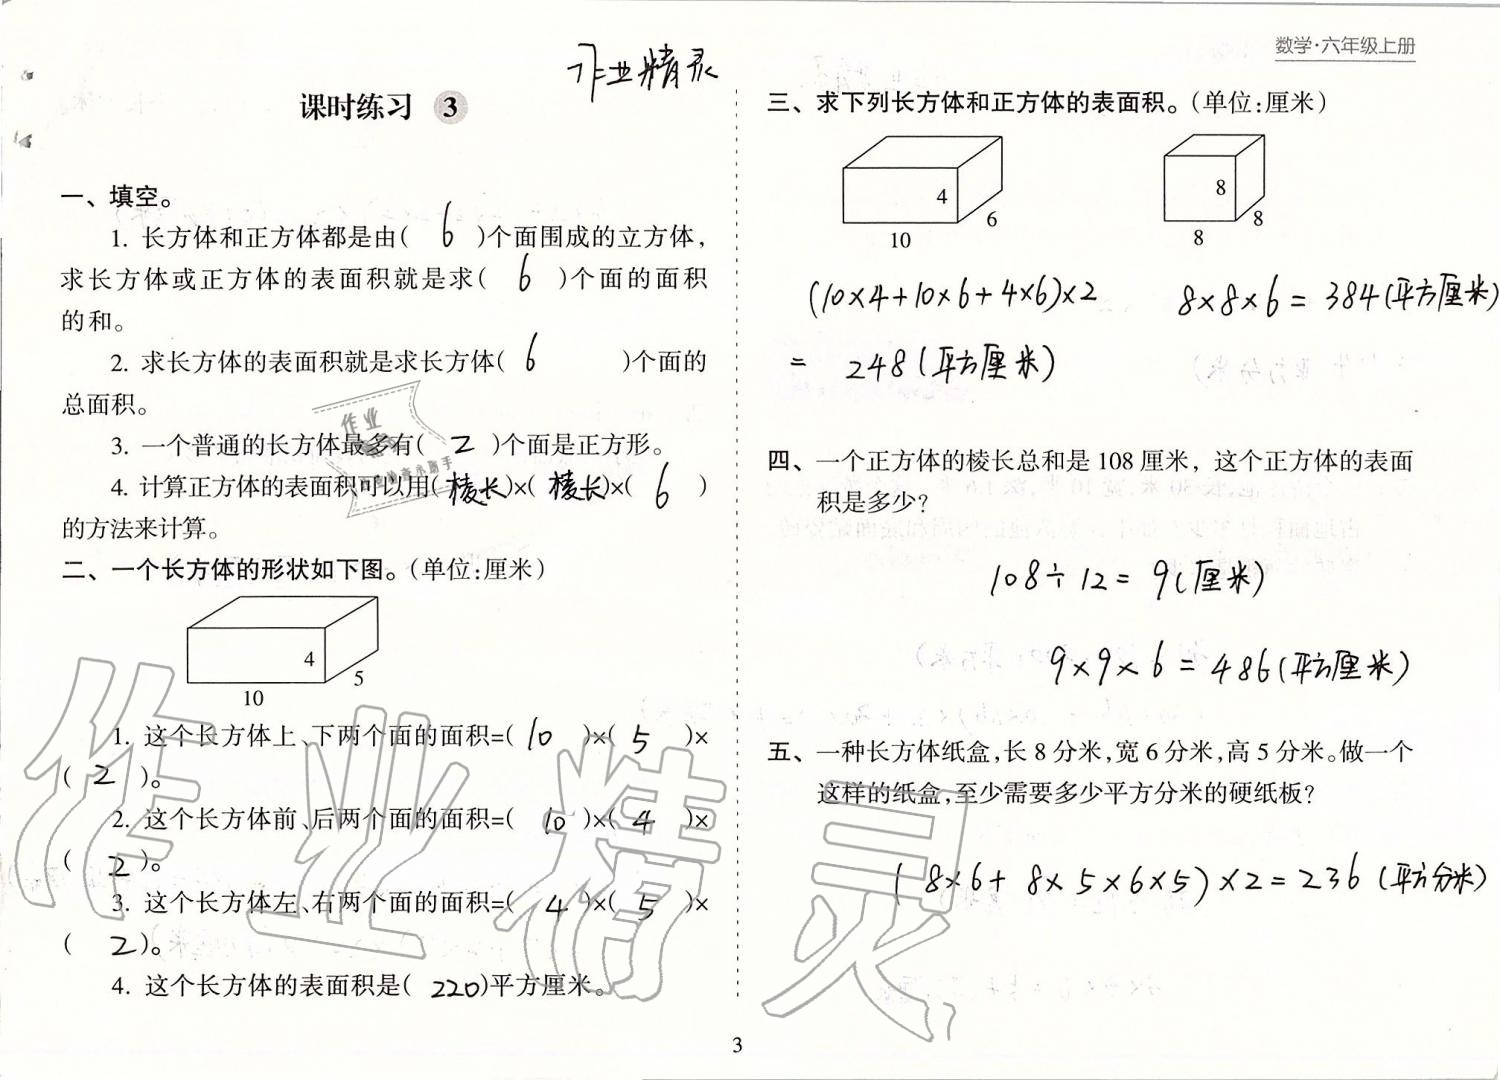 作业精灵
数学·六年级上册
课时练习 3
一、填空。
1. 长方体和正方体都是由( 6 )个面围成的立方体,
求长方体或正方体的表面积就是求( 6 )个面的面积
的和。
2. 求长方体的表面积就是求长方体( 6 )个面的
总面积。
3. 一个普通的长方体最多有( 2 )个面是正方形。
4. 计算正方体的表面积可以用(棱长)×(棱长)×( 6 )
的方法来计算。
二、一个长方体的形状如下图。(单位:厘米)
4
5
10
1. 这个长方体上、下两个面的面积=( 10 )×( 5 )×
( 2 )。
2. 这个长方体前、后两个面的面积=( 10 )×( 4 )×
( 2 )。
3. 这个长方体左、右两个面的面积=( 4 )×( 5 )×
( 2 )。
4. 这个长方体的表面积是( 220 )平方厘米。
三、求下列长方体和正方体的表面积。(单位:厘米)
4
6
10
8
8
8
(10×4+10×6+4×6)×2
= 248(平方厘米)
8×8×6=384(平方厘米)
四、一个正方体的棱长总和是108厘米, 这个正方体的表面
积是多少?
108÷12=9(厘米)
9×9×6=486(平方厘米)
五、一种长方体纸盒,长8分米,宽6分米,高5分米。做一个
这样的纸盒,至少需要多少平方分米的硬纸板?
(8×6+8×5×6×5)×2=236(平方分米)
3
作业精灵
作业